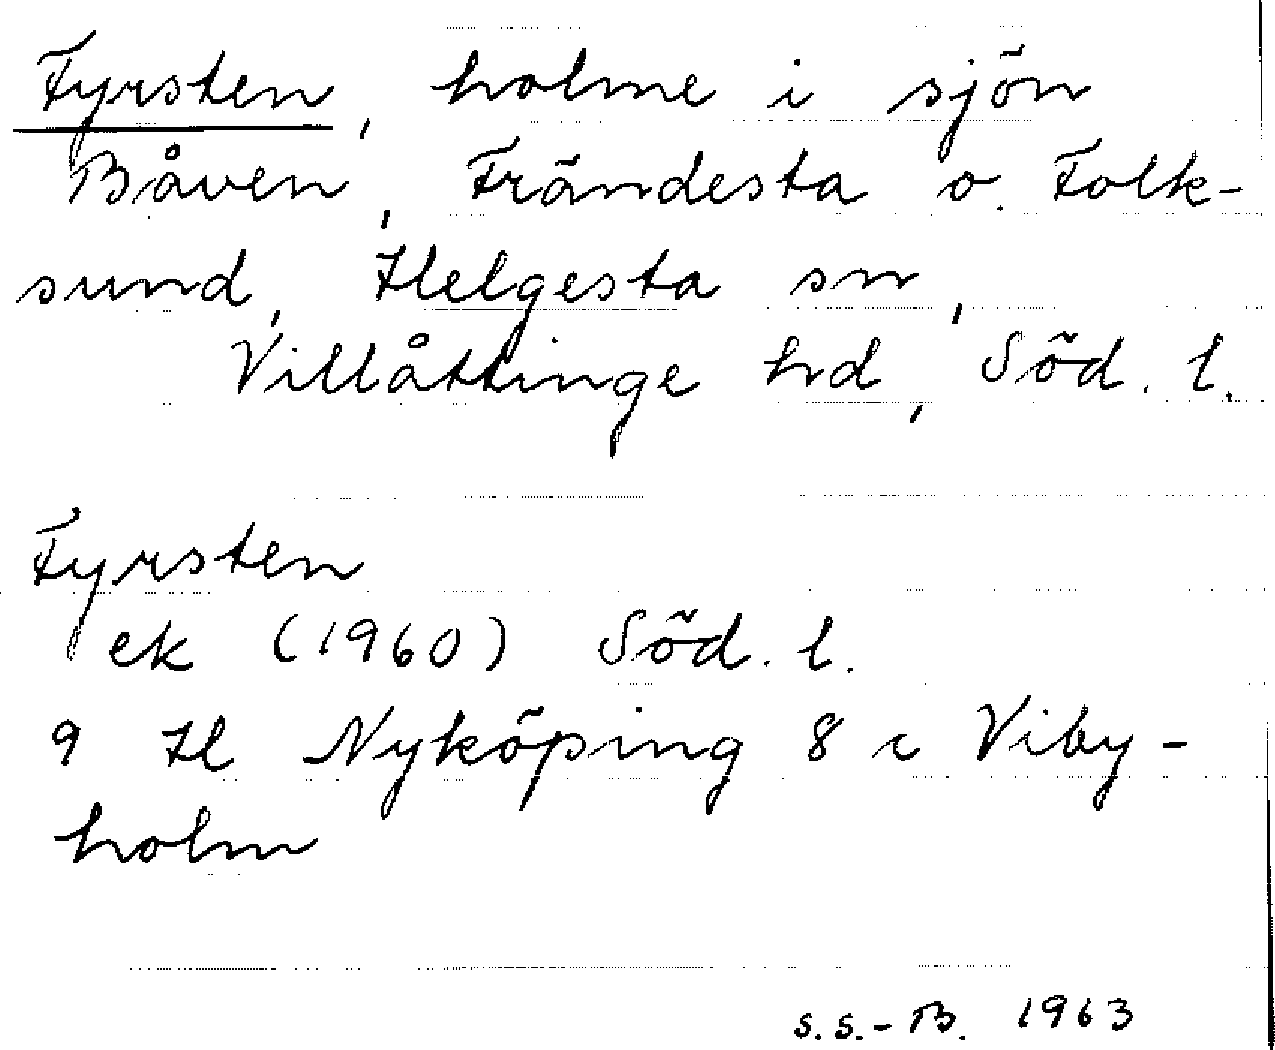 Fyrsten, holme i sjön
Båven, Frändesta o. Folk-
sund, Helgesta sn,
Villåttinge hd, Söd. l.
Fyrsten
ek (1960) Söd. l.
9 H Nyköping 8 c Viby-
holm
s.s.-B. 1963